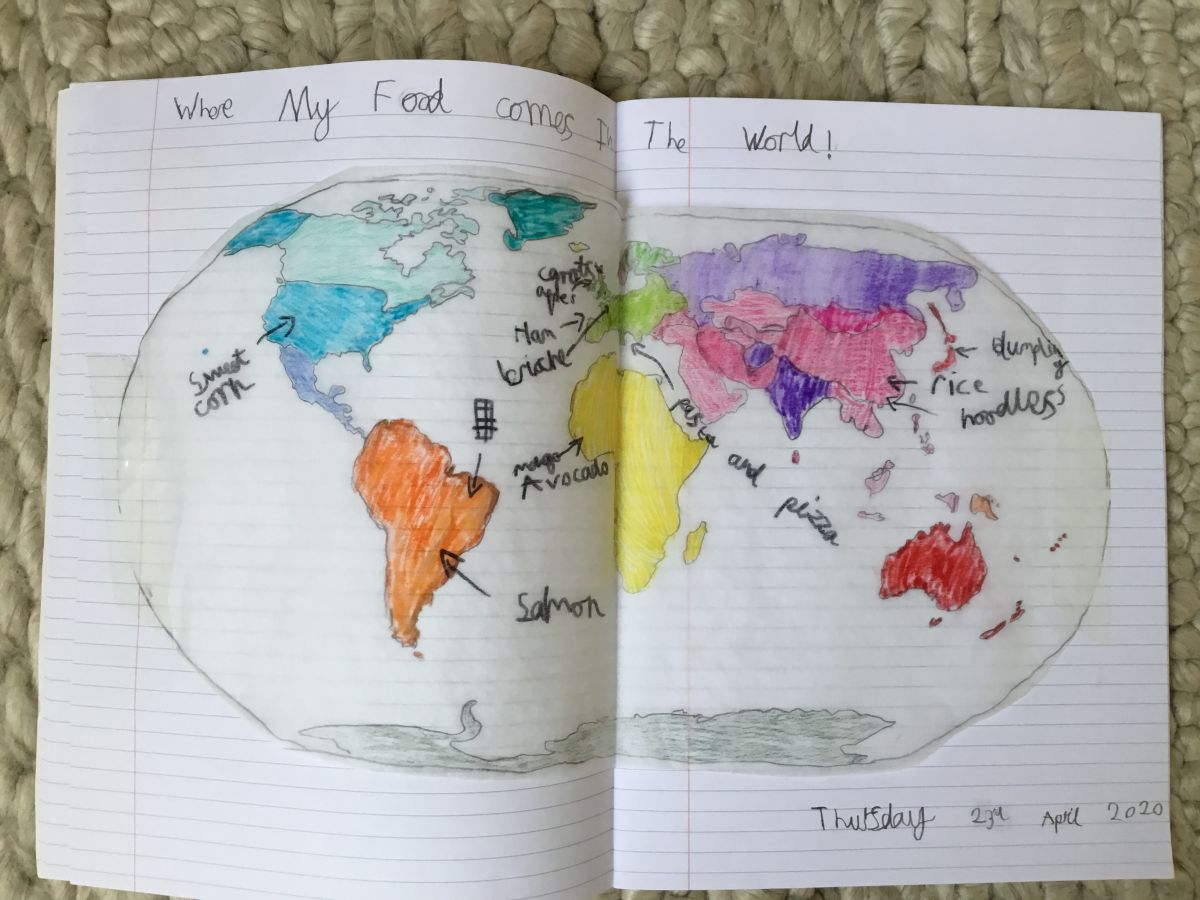 Where My Food comes In The World!
carrots
aples
Ham
brioche
Sweet
corn
mago
Avocado
Salmon
pasta and pizza
dumpling
rice
noodles
Thursday 23rd April 2020